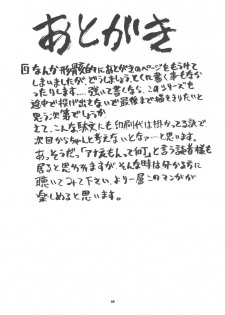 あとがき
回なんか形骸的にあとがきのページをもうけて
しまいましたが、どうしましょう、とくに書く事もなか
ったりします…。強いて書くなら、このシリーズを
途中で投げ出さないで最後まで描ききりたいと
思う次第でしょうか
さて、こんな駄文にも印刷代は掛かってる訳で
次回からちゃんと考えないとなァ…と思います。
あっそうだっ「アナえもんって何」と言う読者様も
居ると思われますが、そんな時は分かる方に
聴いてみて下さい、より一層このマンガが
楽しめると思います。